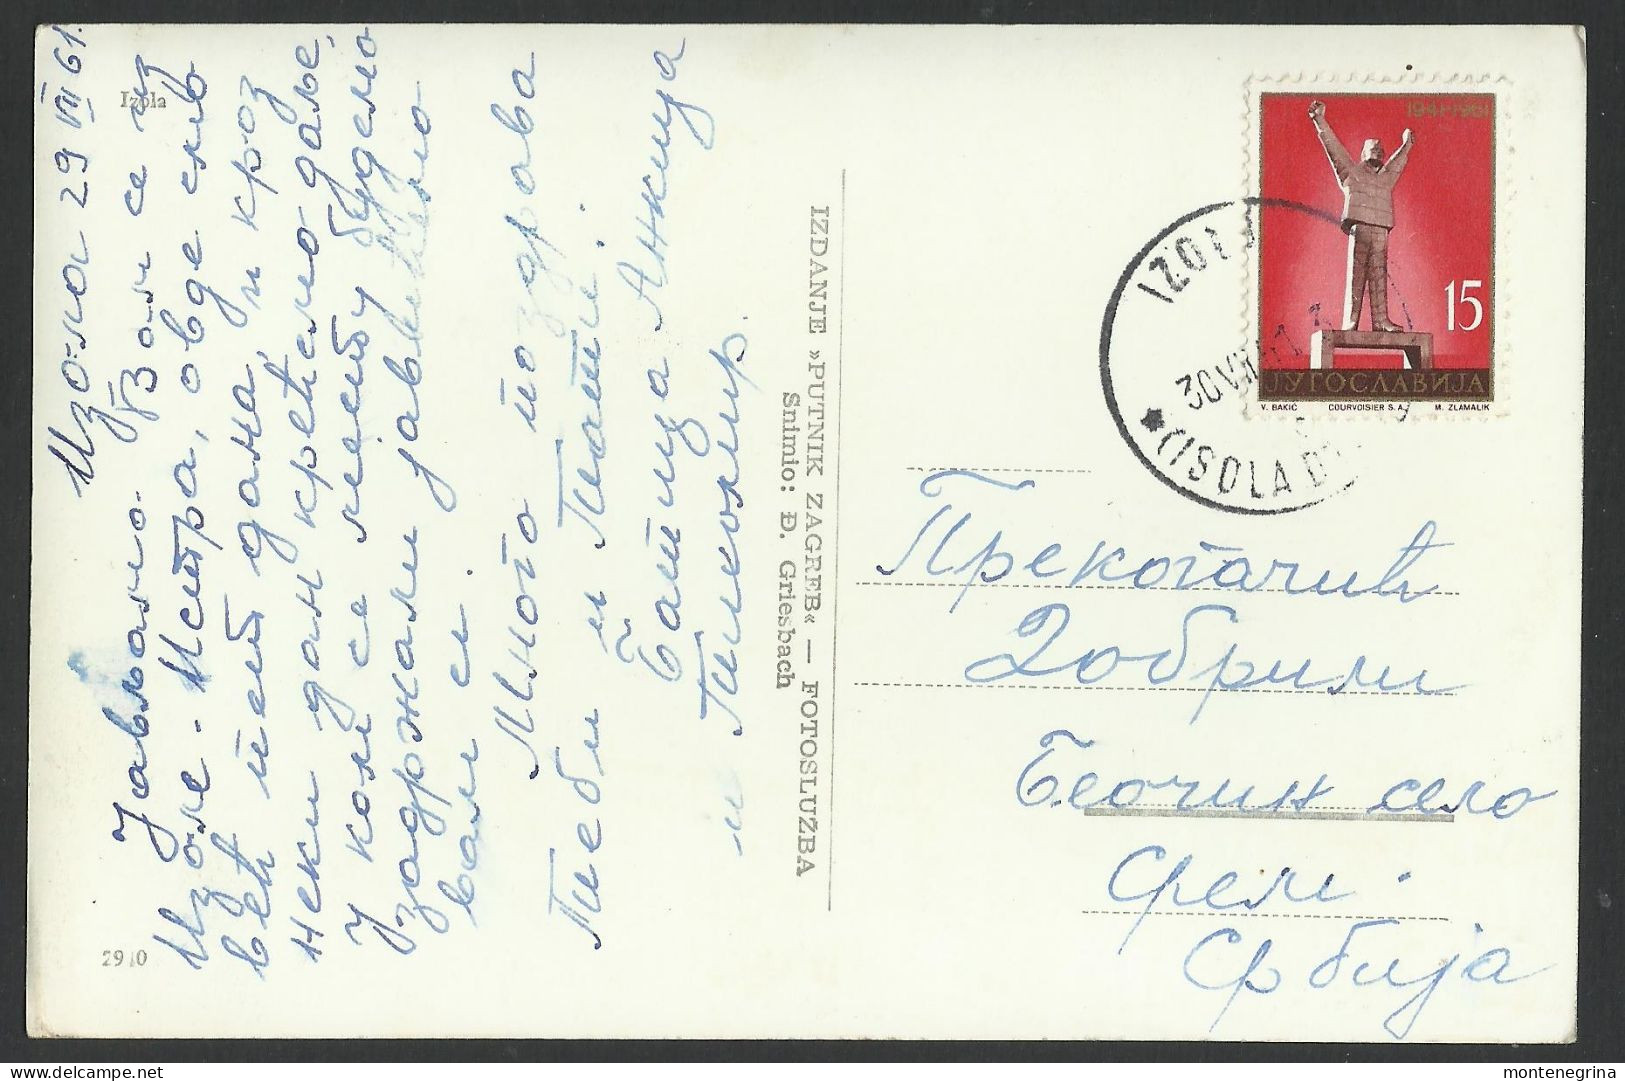 Izola
Изола 29 VII 61.
Јављамо Вам се из
Изоле - Истра, овде смо
већ пет дана, и кроз
неки дан крећемо даље,
у коме се месту будемо
задржали јавићемо
вам се.
Много поздрава
Теби и Мати.
Батица Анкица
и
2910
IZDANJE »PUTNIK ZAGREB« — FOTOSLUŽBA
Snimio: Đ. Griesbach
1941-1961
15
ЈУГОСЛАВИЈА
V. BAKIĆ COURVOISIER S.A. M. ZLAMALIK
(ISOLA D
Прекогачић
Добрили
Беочин село
Срем.
Србија
montenegrina